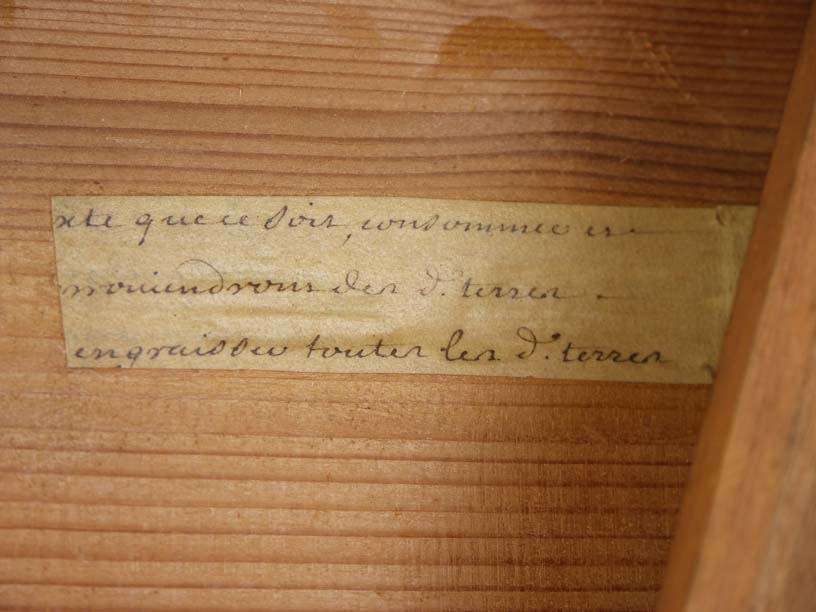 xte que ce soit, consommer et
proviendront des d. terres
engraisser toutes les d. terres